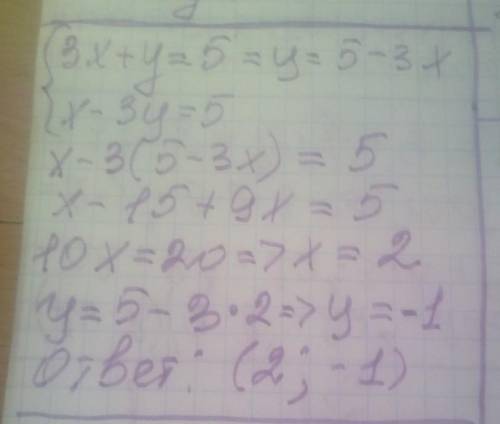 {3x+y=5=y=5-3x
x-3y=5
x-3(5-3x)=5
x-15+9x=5
10x=20=>x=2
y=5-3·2=>y=-1
Ответ: (2; -1)